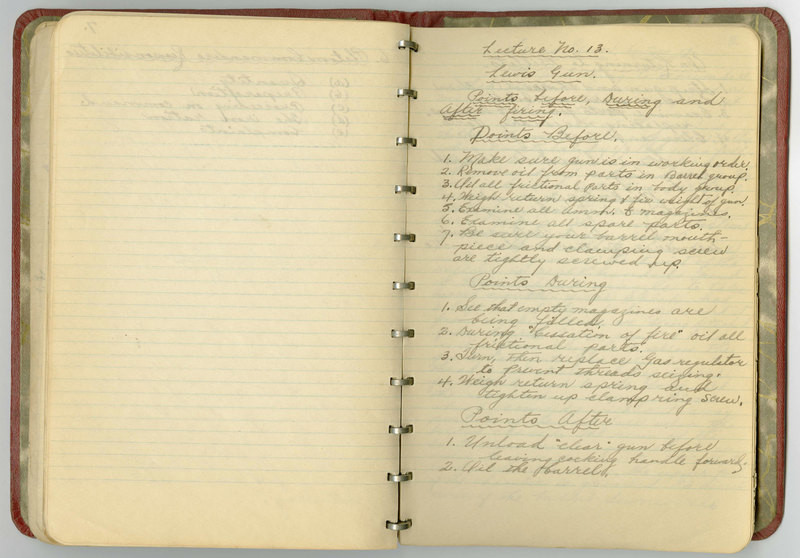 Lecture No. 13.
Lewis Gun.
Points before, During and
After firing.
Points Before.
1. Make sure gun is in working order.
2. Remove oil from parts in Barrel group.
3. Oil all frictional parts in body group.
4. Weigh return spring & fix weight of gun.
5. Examine all amm. & magazines.
6. Examine all spare parts.
7. Be sure your barrel mouth-
piece and clamping screw
are tightly screwed up.
Points During
1. See that empty magazines are
being filled.
2. During "Cessation of fire" oil all
frictional parts.
3. Turn, then replace Gas regulator
to prevent threads seizing.
4. Weigh return spring and
tighten up clampring screw.
Points After
1. Unload "clear" gun before
leaving cocking handle forward.
2. Oil the barrel.